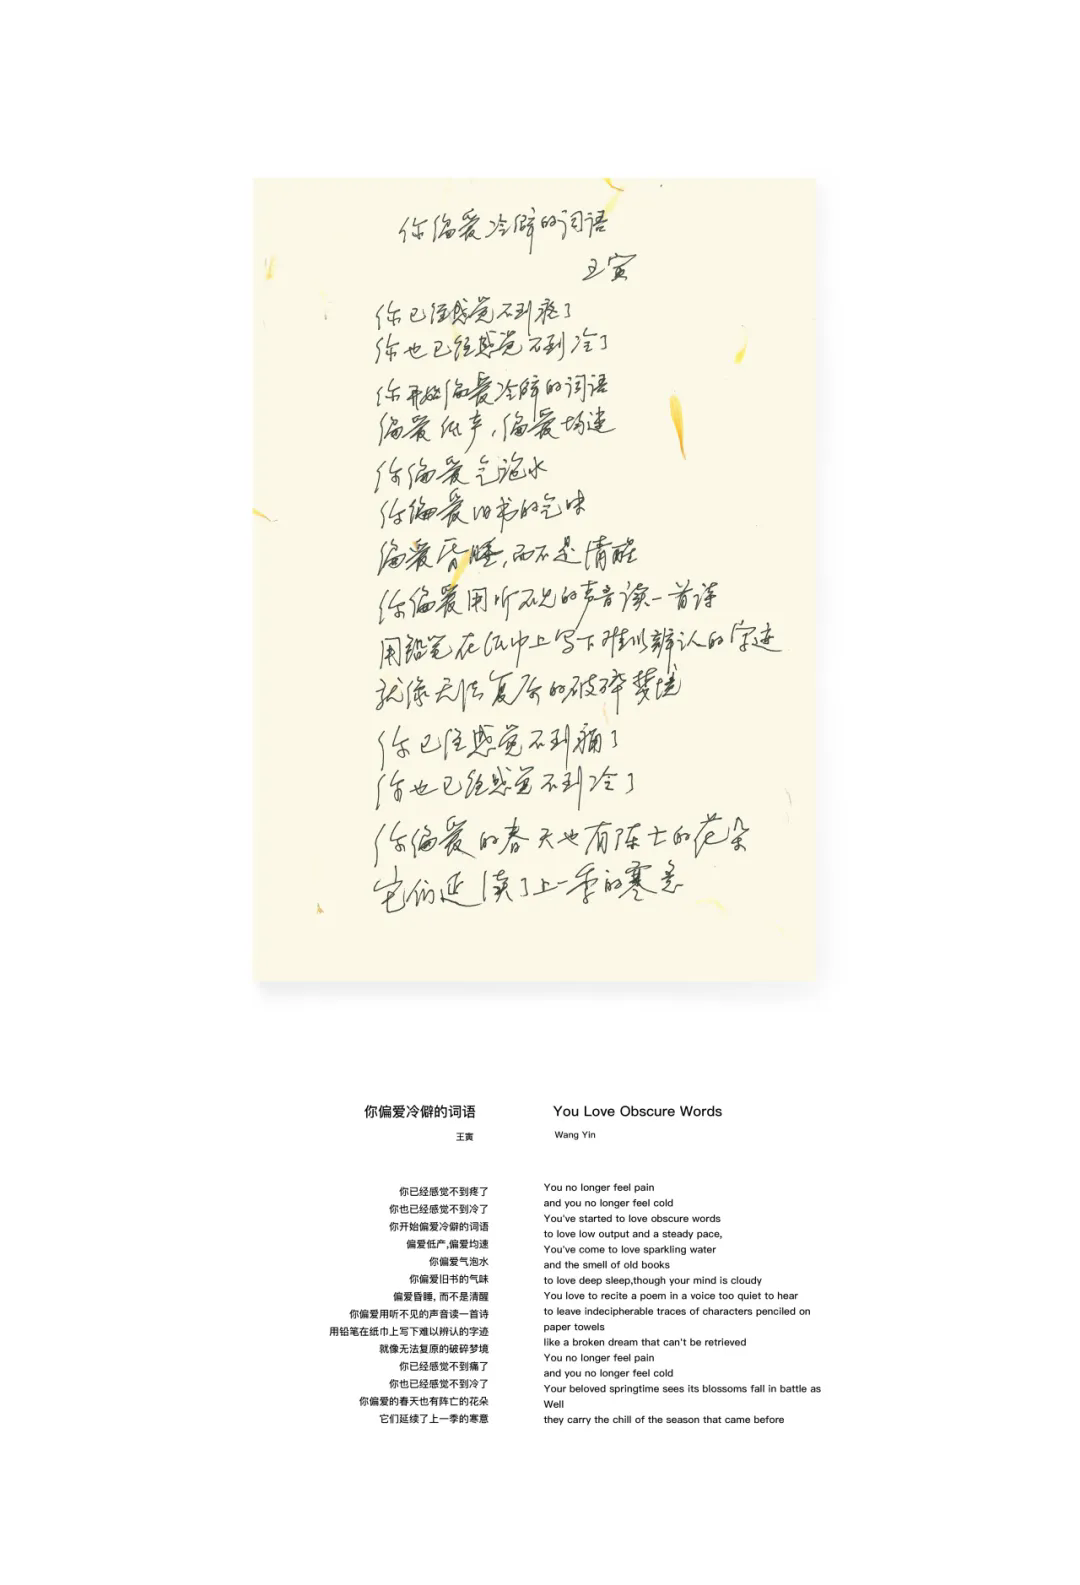 你偏爱冷僻的词语
王寅
你已经感觉不到疼了
你也已经感觉不到冷了
你开始偏爱冷僻的词语
偏爱低产,偏爱均速
你偏爱气泡水
你偏爱旧书的气味
偏爱昏睡,而不是清醒
你偏爱用听不见的声音读一首诗
用铅笔在纸巾上写下难以辨认的字迹
就像无法复原的破碎梦境
你已经感觉不到痛了
你也已经感觉不到冷了
你偏爱的春天也有阵亡的花朵
它们延续了上一季的寒意
你偏爱冷僻的词语
王寅
你已经感觉不到疼了
你也已经感觉不到冷了
你开始偏爱冷僻的词语
偏爱低产,偏爱均速
你偏爱气泡水
你偏爱旧书的气味
偏爱昏睡, 而不是清醒
你偏爱用听不见的声音读一首诗
用铅笔在纸巾上写下难以辨认的字迹
就像无法复原的破碎梦境
你已经感觉不到痛了
你也已经感觉不到冷了
你偏爱的春天也有阵亡的花朵
它们延续了上一季的寒意
You Love Obscure Words
Wang Yin
You no longer feel pain
and you no longer feel cold
You've started to love obscure words
to love low output and a steady pace,
You've come to love sparkling water
and the smell of old books
to love deep sleep,though your mind is cloudy
You love to recite a poem in a voice too quiet to hear
to leave indecipherable traces of characters penciled on
paper towels
like a broken dream that can't be retrieved
You no longer feel pain
and you no longer feel cold
Your beloved springtime sees its blossoms fall in battle as
Well
they carry the chill of the season that came before